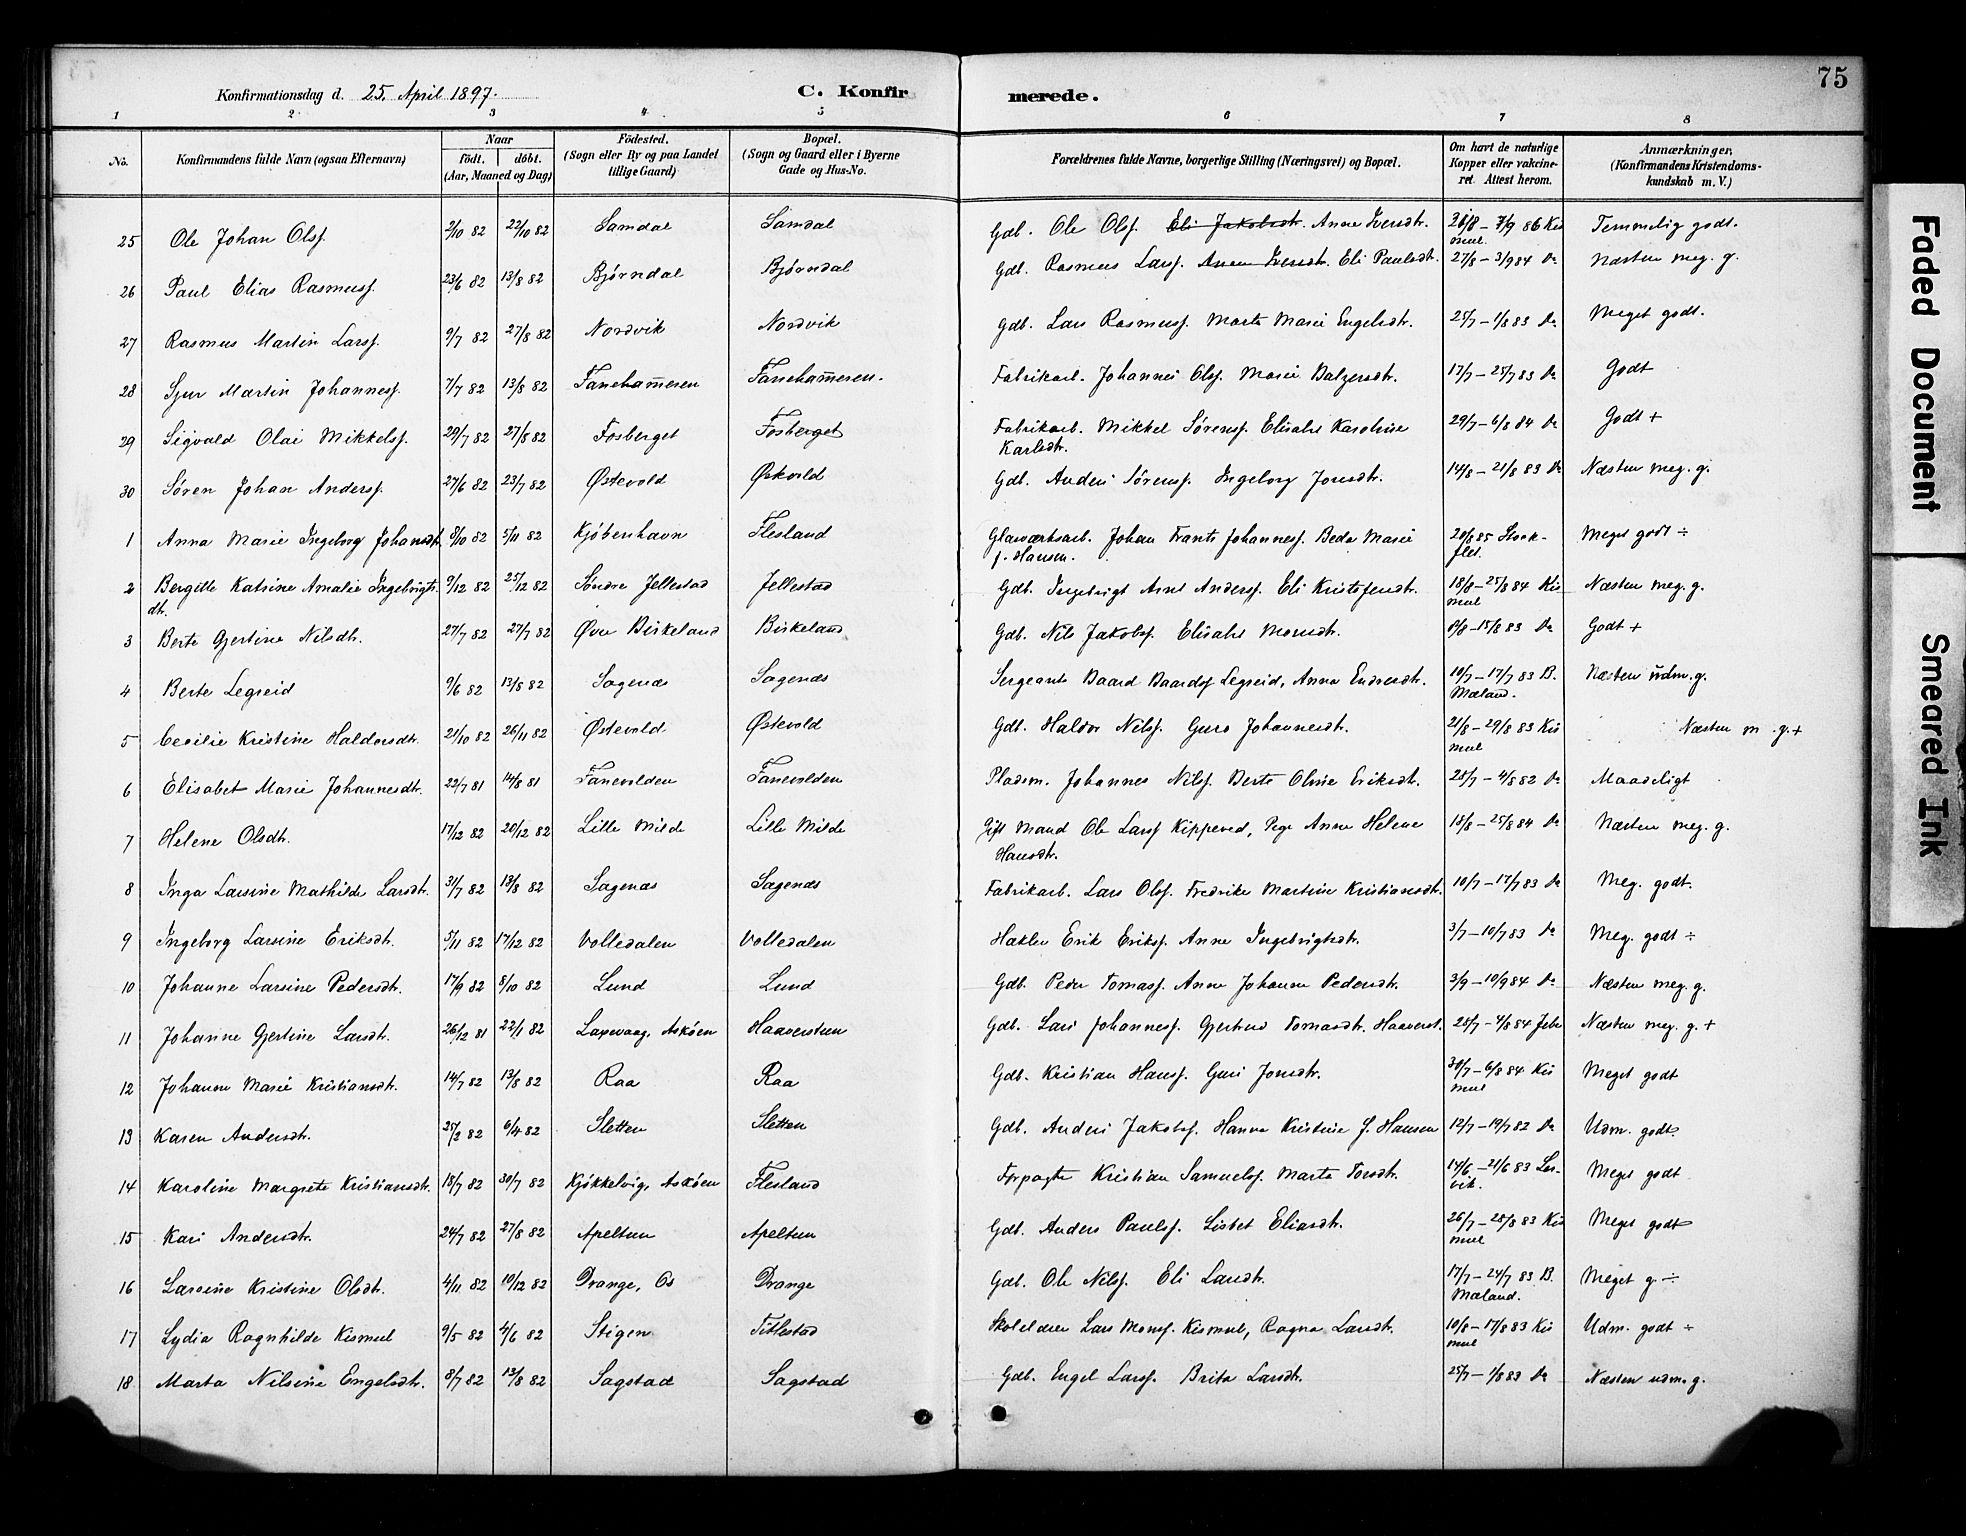 75
Konfirmationsdag d. 25. April 1897.
C. Konfirmerede.
1 2 3 4 5 6 7 8
No. Konfirmandens fulde Navn (ogsaa Efternavn) Naar født. døbt. (Aar, Maaned og Dag) Fødested. (Sogn eller By og paa Landet tillige Gaard) Bopæl. (Sogn og Gaard eller i Byerne Gade og Hus-No. Forældrenes fulde Navne, borgerlige Stilling (Næringsvei) og Bopæl. Om havt de naturlige Kopper eller vakcineret. Attest herom. Anmærkninger, (Konfirmandens Kristendomskundskab m. V.)
25 Ole Johan Olsf. 2/10 82 22/10 82 Samdal Samdal Gdb. Ole Olsf. Eli Jakobsdtr. Anna Iversdtr. 31/8 – 7/9 86 Kismul. Temmelig godt.
26 Paul Elias Rasmusf. 23/6 82 13/8 82 Bjørndal Bjørndal Gdb. Rasmus Larsf. Anna Iversdt. Eli Paulsdt. 27/8 – 3/9 84 Do Næsten meg. g.
27 Rasmus Martin Larsf. 9/7 82 27/8 82 Nordvik Nordvik Gdb. Lars Rasmusf. Marta Marie Engelsdtr. 25/7 – 1/8 83 Do Meget godt.
28 Sjur Martin Johannesf. 7/7 82 13/8 82 Faneham̄eren Faneham̄eren. Fabrikarb. Johannes Olsf. Marie Balzersdtr. 17/7 – 25/7 83 Do Godt
29 Sigvald Olai Mikkelsf. 29/7 82 27/8 82 Fosberget Fosberget Fabrikarb. Mikkel Sørensf. Elisabet Karoline Karlsdtr. 29/7 – 6/8 84 Do Godt +
30 Søren Johan Andersf. 27/6 82 23/7 82 Østevold Østevold Gdb. Anders Sørensf. Ingeborg Jonsdtr. 14/8 – 21/8 83 Do Næsten meg. g.
1 Anna Marie Ingeborg Johansdt. 8/10 82 5/11 82 Kjøbenhavn Flesland Glasværksarb. Johan Frants Johannesf. Beda Marie f. Hansen. 20/8 85 Meget godt ÷
2 Bergitte Katrine Amalie Ingebrigtsdt. 9/12 82 25/12 82 Søndre Jellestad Jellestad Gdb. Ingebrigt Arnt Andersf. Eli Kristofersdtr. 18/8 – 25/8 84 Kismul Næsten meg. g.
3 Berte Gjertine Nilsdt. 27/7 82 27/7 82 Øvre Birkeland Birkeland Gdb. Nils Jakobsf. Elisabet Monsdtr. 8/8 – 15/8 83 Do Godt +
4 Berte Legreid 9/6 82 13/8 82 Sagenæs Sagenæs Sergeant Baard Baardsf Legreid, Anna Endresdtr. 10/7 – 17/7 83 B. Mæland. Næsten udm. g.
5 Cecilie Kristine Haldorsdt. 21/10 82 26/11 82 Østevold Østevold Gdb. Haldor Nilsf. Guro Johannesdt. 21/8 – 29/8 83 Kismul Næsten m. g. +
6 Elisabet Marie Johannesdt. 22/7 81 14/8 81 Fanevolden Fanevolden Pladsm. Johannes Nilsf. Berte Oline Eriksdtr. 28/7 – 4/8 82 Do Maadeligt
7 Helene Olsdt. 17/12 82 20/12 82 Lille Milde Lille Milde Gift Mand Ole Larsf Kippeved, Pige Anna Helene Hansdtr. 18/8 – 25/8 84 Do Næsten meg. g.
8 Inga Larsine Mathilde Larsdt. 31/7 82 13/8 82 Sagenæs Sagenæs Fabrikarb. Lars Olsf. Fredrike Martine Kristiansdt. 10/7 – 17/7 83 Do Meg. godt.
9 Ingeborg Larsine Eriksdt. 5/11 82 17/12 82 Volledalen Volledalen Erik Eriksf. Anna Ingebrigtsdt. 3/7 – 10/7 83 Do Meg. godt ÷
10 Johanne Larsine Pedersdt. 17/9 82 8/10 82 Lund Lund Gdb. Peder Tomasf. Anna Johanna Pedersdt. 3/9 – 10/9 84 Do Næsten meg. g.
11 Johanne Gjertine Larsdt. 26/12 81 22/1 82 Laxevaag, Askøen Haaversteen Gdb. Lars Johannesf. Gjertrud Tomasdt. Haaverst. 28/7 – 4/8 84 Næsten meg. g. +
12 Johanna Marie Kristiansdt. 14/7 82 13/8 82 Raa Raa Gdb. Kristian Hansf. Guri Jonsdtr. 30/7 – 6/8 84 Kismul Meget godt
13 Karen Andersdt. 25/2 82 6/4 82 Sletten Sletten Gdb. Anders Jakobsf. Hanna Kristine f. Hansen 12/7 – 19/7 82 Do Udm. godt.
14 Karoline Margrete Kristiansdt. 18/7 82 30/7 82 Kjøkkelvig, Askøen Flesland Forpagter Kristian Samuelsf. Marta Torsdtr. 14/6 – 21/6 83 Lervik. Meget godt
15 Kari Andersdt. 24/7 82 27/8 82 Apeltun Apeltun Gdb. Anders Paulsf. Lisbet Eliasdt. 26/7 – 28/8 83 Kismul Meget godt
16 Larsine Kristine Olsdt. 4/11 82 10/12 82 Drange, Os Drange Gdb. Ole Nilsf. Eli Larsdt. 17/7 – 24/7 83 B. Mæland. Meget g. ÷
17 Lydia Ragnhilde Kismul 9/5 82 4/6 82 Stigen Titlestad Skolelærer Lars Monsf. Kismul, Ragna Larsdt. 10/8 – 17/8 83 Kismul Udm. godt ÷
18 Marta Nilsine Engelsdt. 8/7 82 13/8 82 Sagstad Sagstad Gdb. Engel Larsf. Brita Larsdt. 25/7 – 1/8 83 Do Næsten udm. g.
Faded Document
Smeared Ink